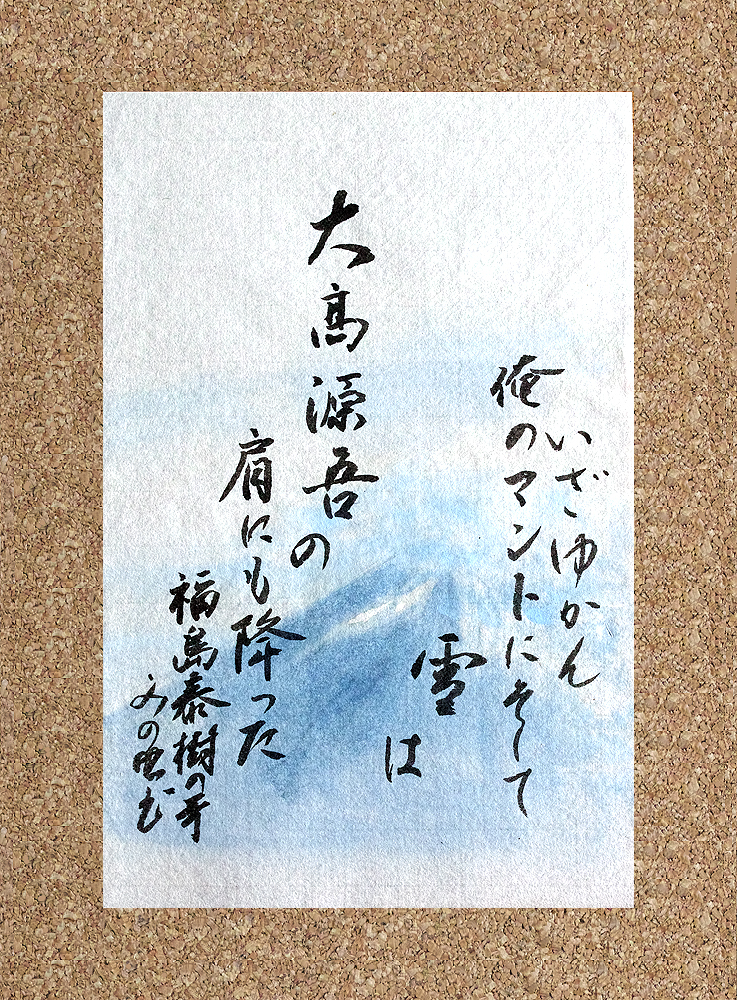 いざゆかん
俺のマントにそして
雪は
大高源吾の
肩にも降った
福島泰樹の哥
みの虫書